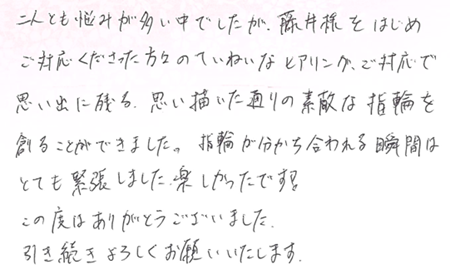 二人とも悩みが多い中でしたが、藤井様をはじめ
ご対応くださった方々のていねいなヒアリング、ご対応で
思い出に残る、思い描いた通りの素敵な指輪を
創ることができました。指輪が分かち合われる瞬間は
とても緊張しました、楽しかったです!
この度はありがとうございました。
引き続きよろしくお願いいたします。